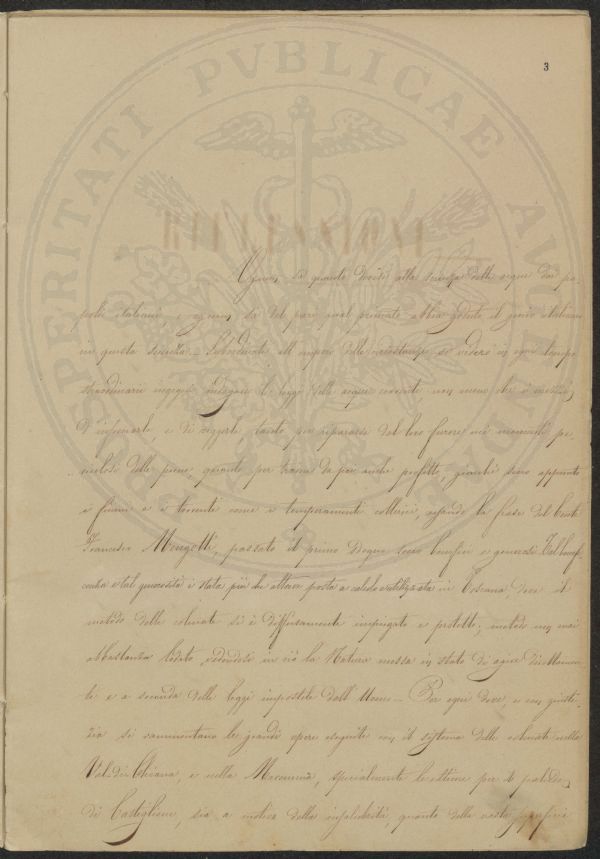 3
PROSPERITATI PVBLICAE AVGENDAE
RIFLESSIONI
Ognun sa quanto devesi alla scienza delle acque dai po-
poli italiani e ognun sa del pari qual primato abbia goduto il genio italiano
in questa scienza. Subordinati all'impero delle circostanze si videro in ogni tempo
straordinari ingegni indagare le leggi delle acque correnti non meno che i mezzi
d'infrenarle, e di reggerle tanto per ripararsi dal loro furore nei momenti pe-
ricolosi delle piene, quanto per trarne dapoi anche profitto, giacchè sono appunto
i fiumi e i torrenti come i temperamenti collerici, usando la frase del Conte
Francesco Mengotti, passato il primo sdegno sono benefici e generosi. Tal benefi-
cenza e tal generosità è stata più che altrove posta a calcolo e utilizzata in Toscana dove il
metodo delle colmate si è diffusamente impiegato e protetto; metodo non mai
abbastanza lodato, vedendosi in ciò la Natura messa in stato di agire direttamen-
te e a seconda delle leggi impostele dall'Uomo — Per ogni dove, e con giusti-
zia si rammentano le grandi opere eseguite con il sistema delle colmate nella
Val di Chiana, e nella Maremma, specialmente le ultime per il padule
di Castiglione, sia a motivo della insalubrità, quanto della vasta superficie